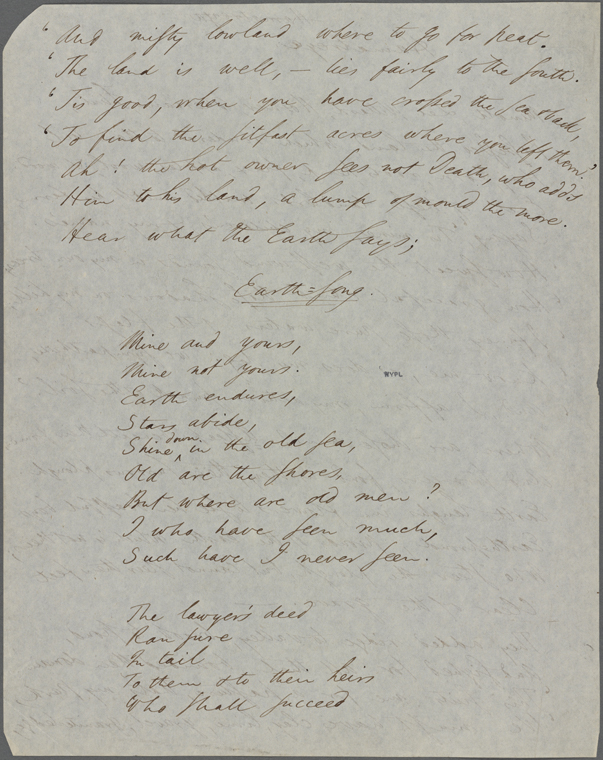 “ And misty lowland where to go for peat.
“ The land is well, — lies fairly to the south.
“ 'Tis good, when you have crossed the sea & back,
“ To find the sitfast acres where you left them."
Ah! the hot owner sees not Death, who adds
Him to his land, a lump of mould the more.
Hear what the Earth says;
Earth=Song.
Mine and yours,
Mine not yours.
Earth endures,
Stars abide,
Shine down in the old sea,
Old are the shores,
But where are old men?
I who have seen much,
Such have I never seen.
NYPL
The lawyer's deed
Ran sure
In tail
To them & to their heirs
Who shall succeed